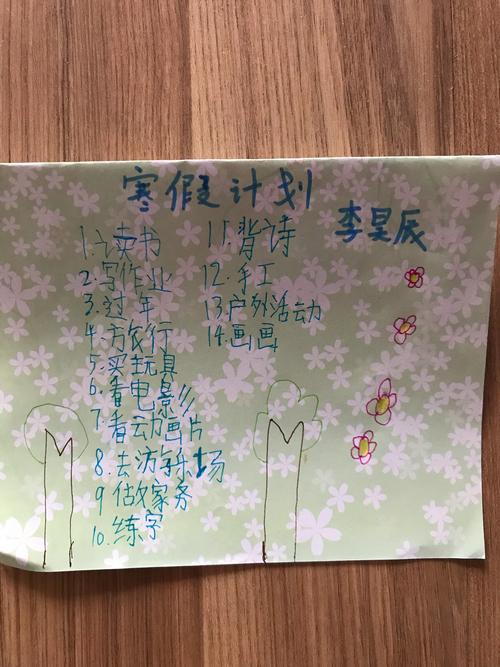 寒假计划
李昊辰
1.读书
2.写作业
3.过年
4.旅行
5.买玩具
6.看电影
7.看动画片
8.去游乐场
9做家务
10.练字
11.背诗
12.手工
13.户外活动
14.画画